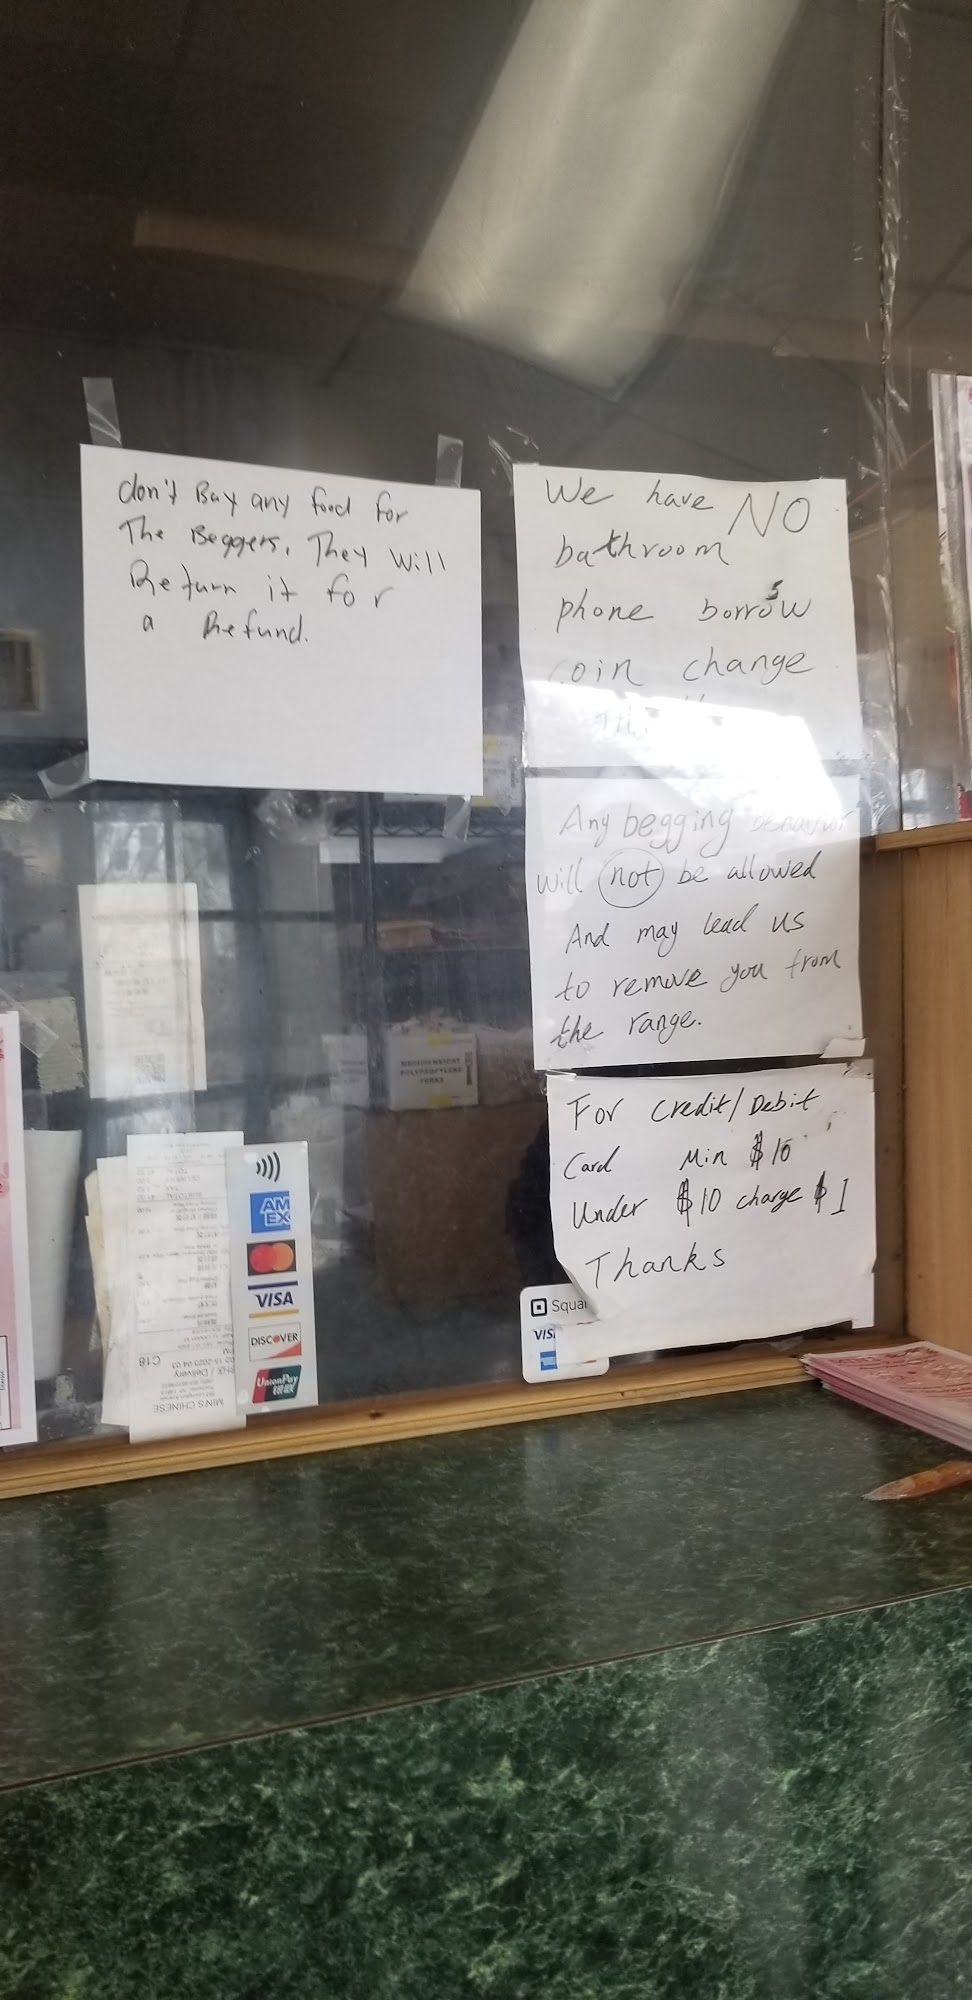 don't Buy any food for
The Beggers, They Will
Return it for
a Refund.
We have NO
bathroom
phone borrow
coin change
Any begging behavior
will not be allowed
And may lead us
to remove you from
the range.
For Credit/Debit
Card Min $10
Under $10 charge $1
Thanks
AM
EX
VISA
DISCOVER
UnionPay
银联
MIN'S CHINESE
C18
MEDIUM WEIGHT
POLYPROPYLENE
FORKS